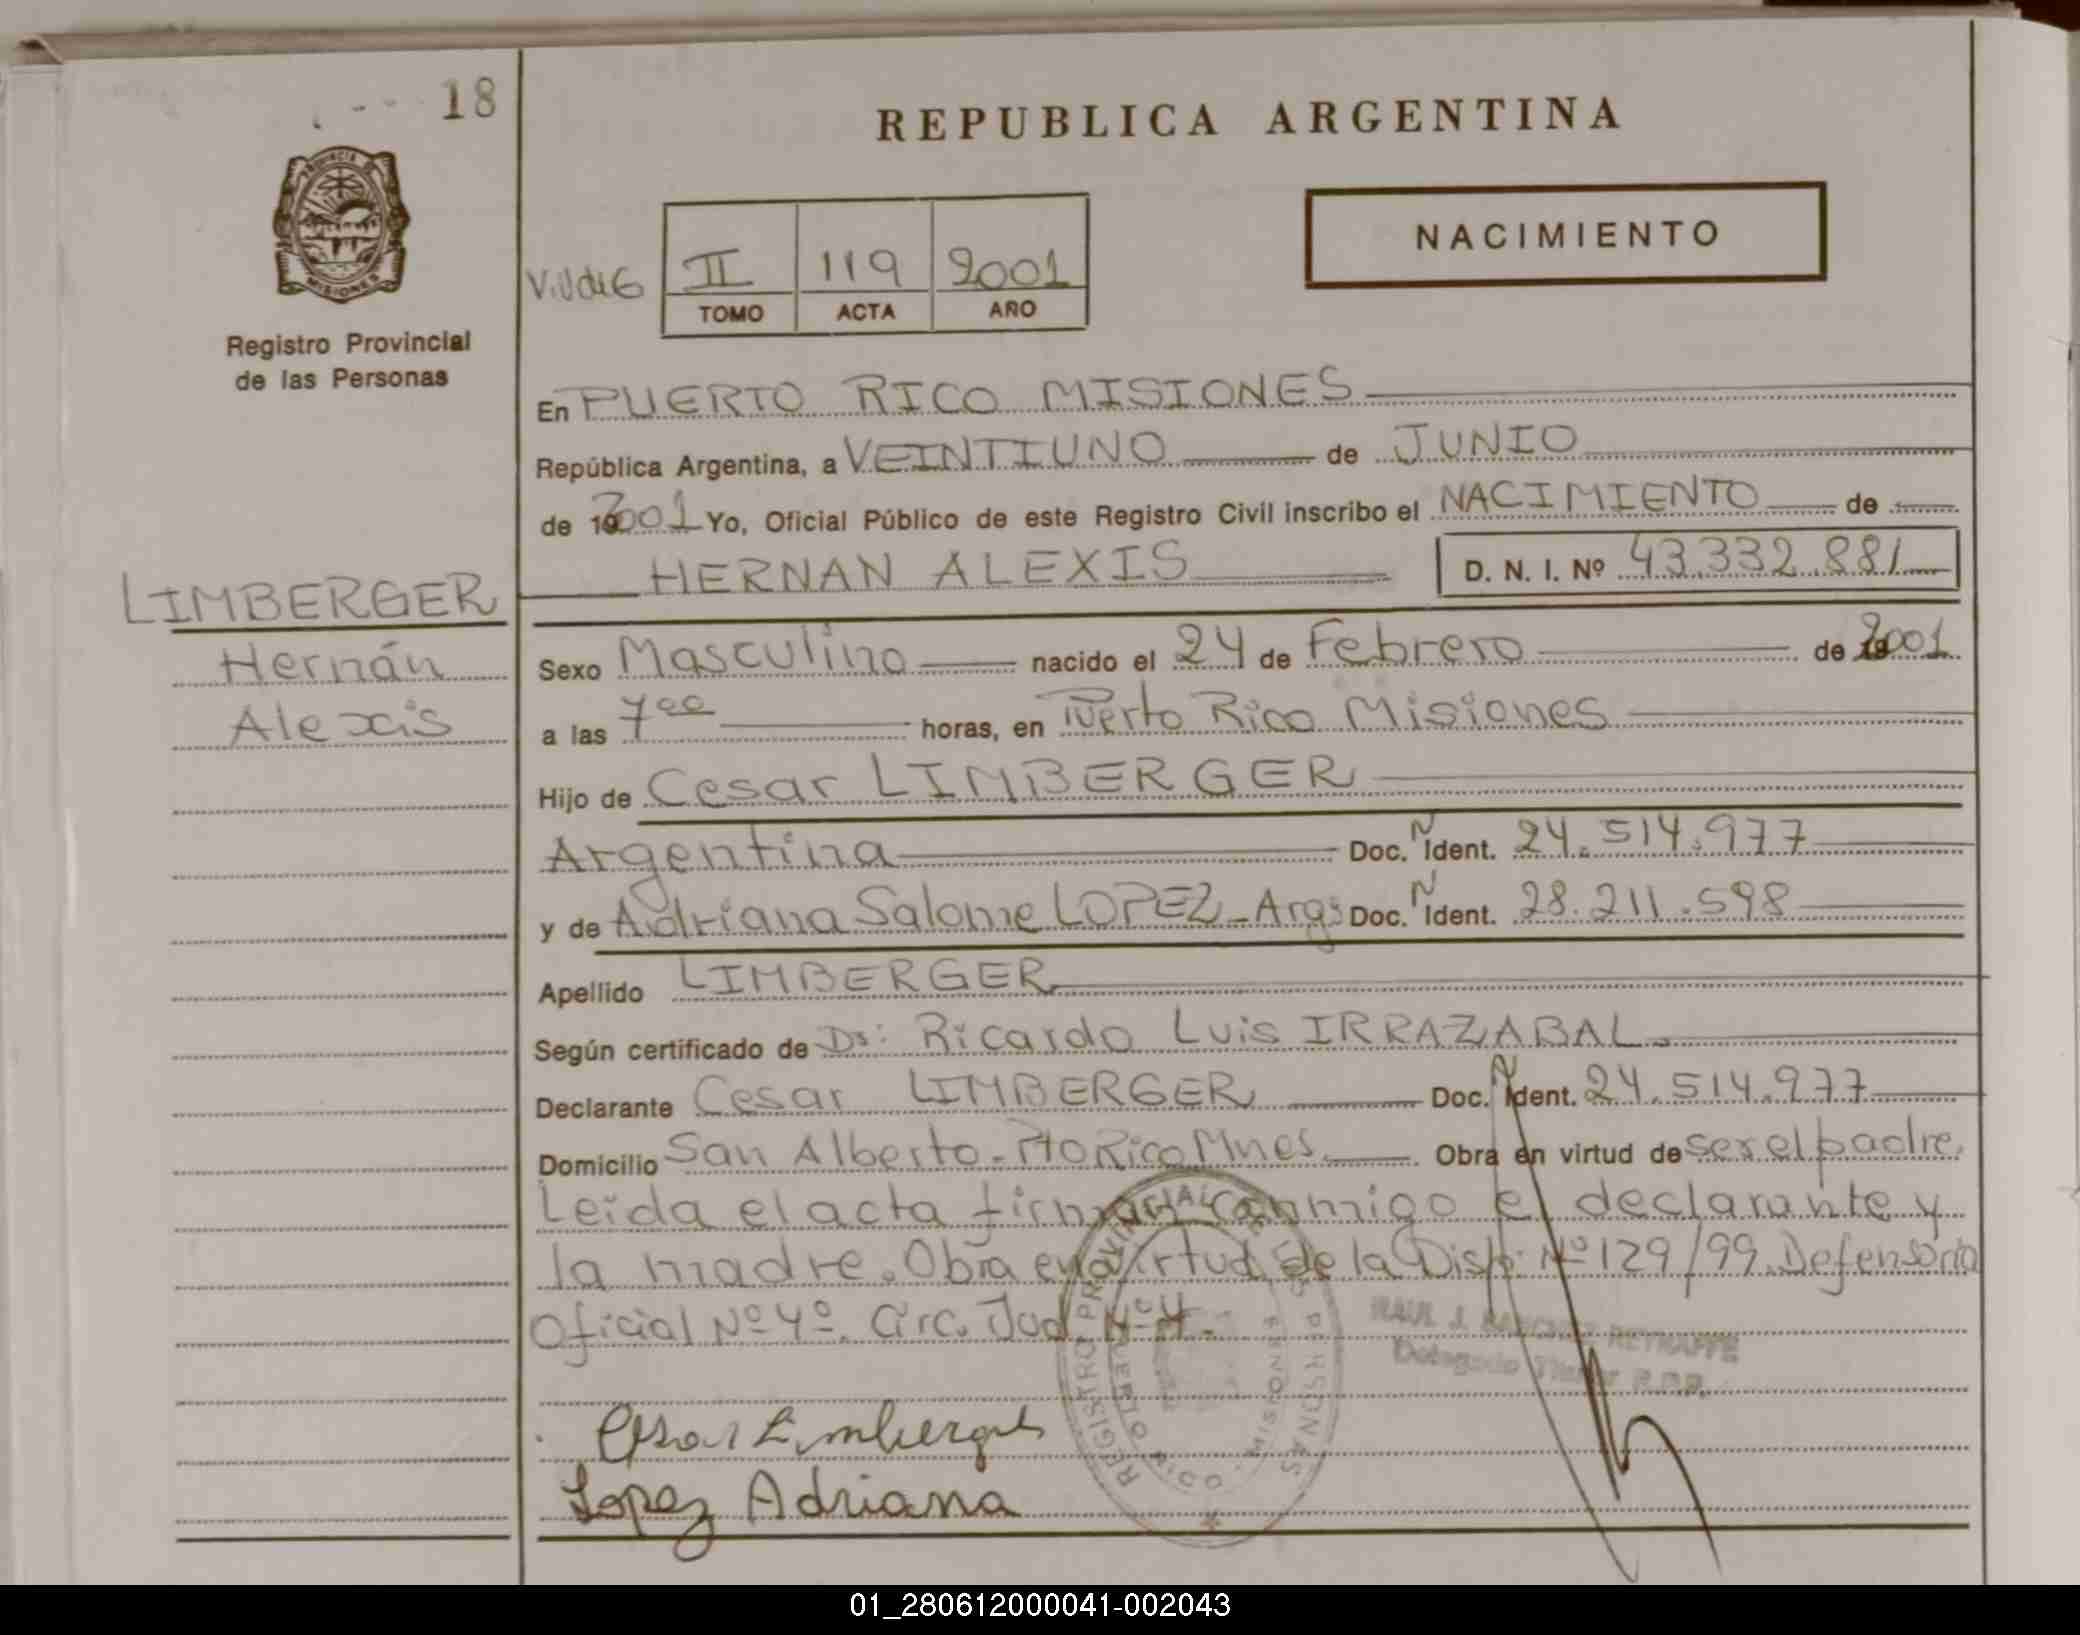 18
REPUBLICA ARGENTINA
NACIMIENTO
II 119 2001
TOMO ACTA AÑO
Registro Provincial
de las Personas
En PUERTO RICO MISIONES
República Argentina, a VEINTIUNO de JUNIO
de 2001 Yo, Oficial Público de este Registro Civil inscribo el NACIMIENTO de
HERNAN ALEXIS D. N. I. Nº 43.332.881
LIMBERGER
Hernán
Alexis
Sexo Masculino nacido el 24 de Febrero de 2001
a las 7 00 horas, en Puerto Rico Misiones
Hijo de Cesar LIMBERGER
Argentina Doc. N Ident. 24.514.977
y de Adriana Salome LOPEZ - Arg: Doc. N Ident. 28.211.598
Apellido LIMBERGER
Según certificado de Dr: Ricardo Luis IRRAZABAL.
Declarante Cesar LIMBERGER Doc. N Ident. 24.514.977
Domicilio San Alberto - Pto Rico Mnes. Obra en virtud de ser el padre.
Leída el acta firman conmigo el declarante y
la madre. Obra en virtud de la Disp. Nº 129/99. Defensoría
Oficial Nº 4º. Circ. Jud. Nº 4.
REGISTRO PROVINCIAL DE LAS PERSONAS
MISIONES
RAUL J.
Delegado Titular R.P.P.
Cesar Limberger
Lopez Adriana
01_280612000041-002043